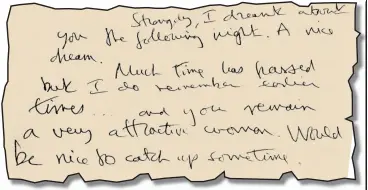 Strangely, I dreamt about
you the following night. A nice
dream.
Much time has passed
but I do remember earlier
times... and you remain
a very attractive woman. Would
be nice to catch up sometime.